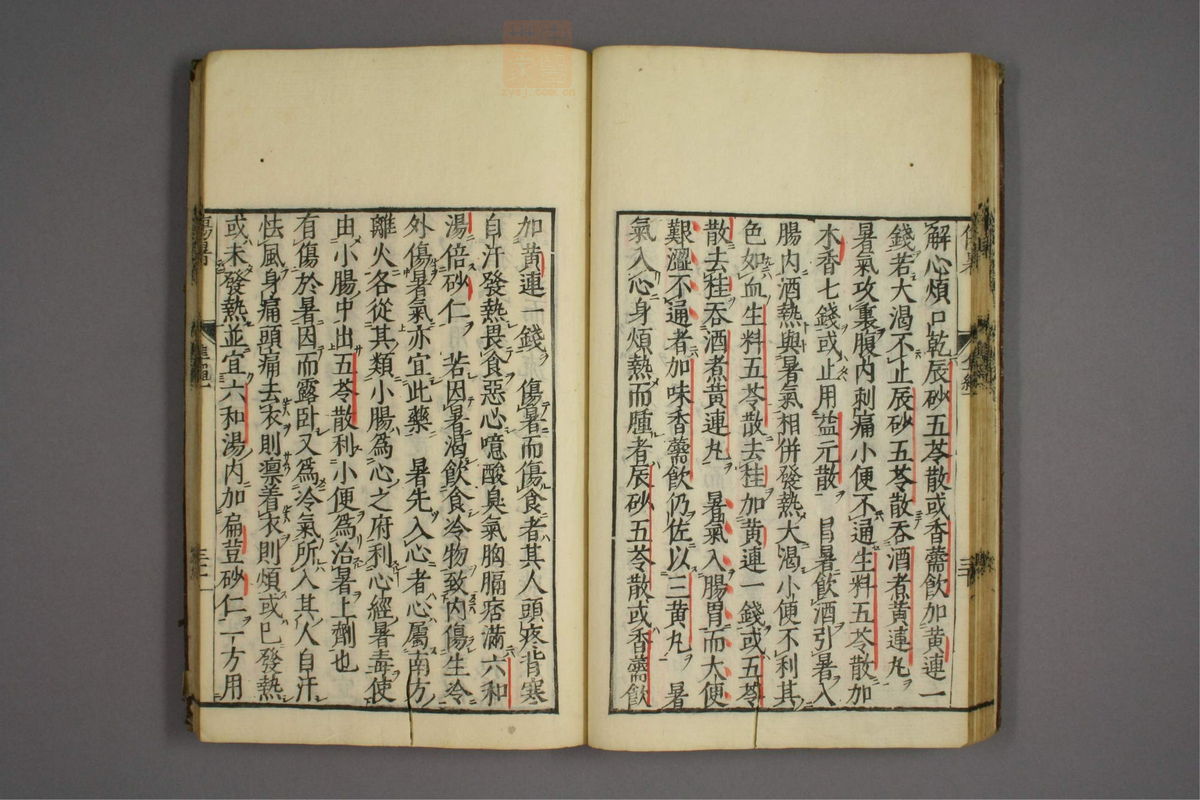 解心煩口乾辰砂五苓散或香薷飲加黃連一
錢若大渴不止辰砂五苓散吞酒煮黃連丸
暑氣攻裏腹內刺痛小便不通生料五苓散加
木香七錢或止用益元散　冒暑飲酒引暑入
腸內酒熱與暑氣相併發熱大渴小便不利其
色如血生料五苓散去桂加黃連一錢或五苓
散去桂吞酒煮黃連丸　暑氣入腸胃而大便
艱澀不通者加味香薷飲仍佐以三黃丸　暑
氣入心身煩熱而腫者辰砂五苓散或香薷飲
加黃連一錢　傷暑而傷食者其人頭疼背寒
自汗發熱畏食惡心噫酸臭氣胸膈痞滿六和
湯倍砂仁　若因暑渴飲食冷物致內傷生冷
外傷暑氣亦宜此藥　暑先入心者心屬南方
離火各從其類小腸為心之府利心經暑毒使
由小腸中出五苓散利小便為治暑上劑也
有傷於暑因而露臥又為冷氣所入其人自汗
怯風身痛頭痛去衣則凛着衣則煩或已發熱
或未發熱並宜六和湯內加扁荳砂仁一方用
傷暑
zysj.com.cn